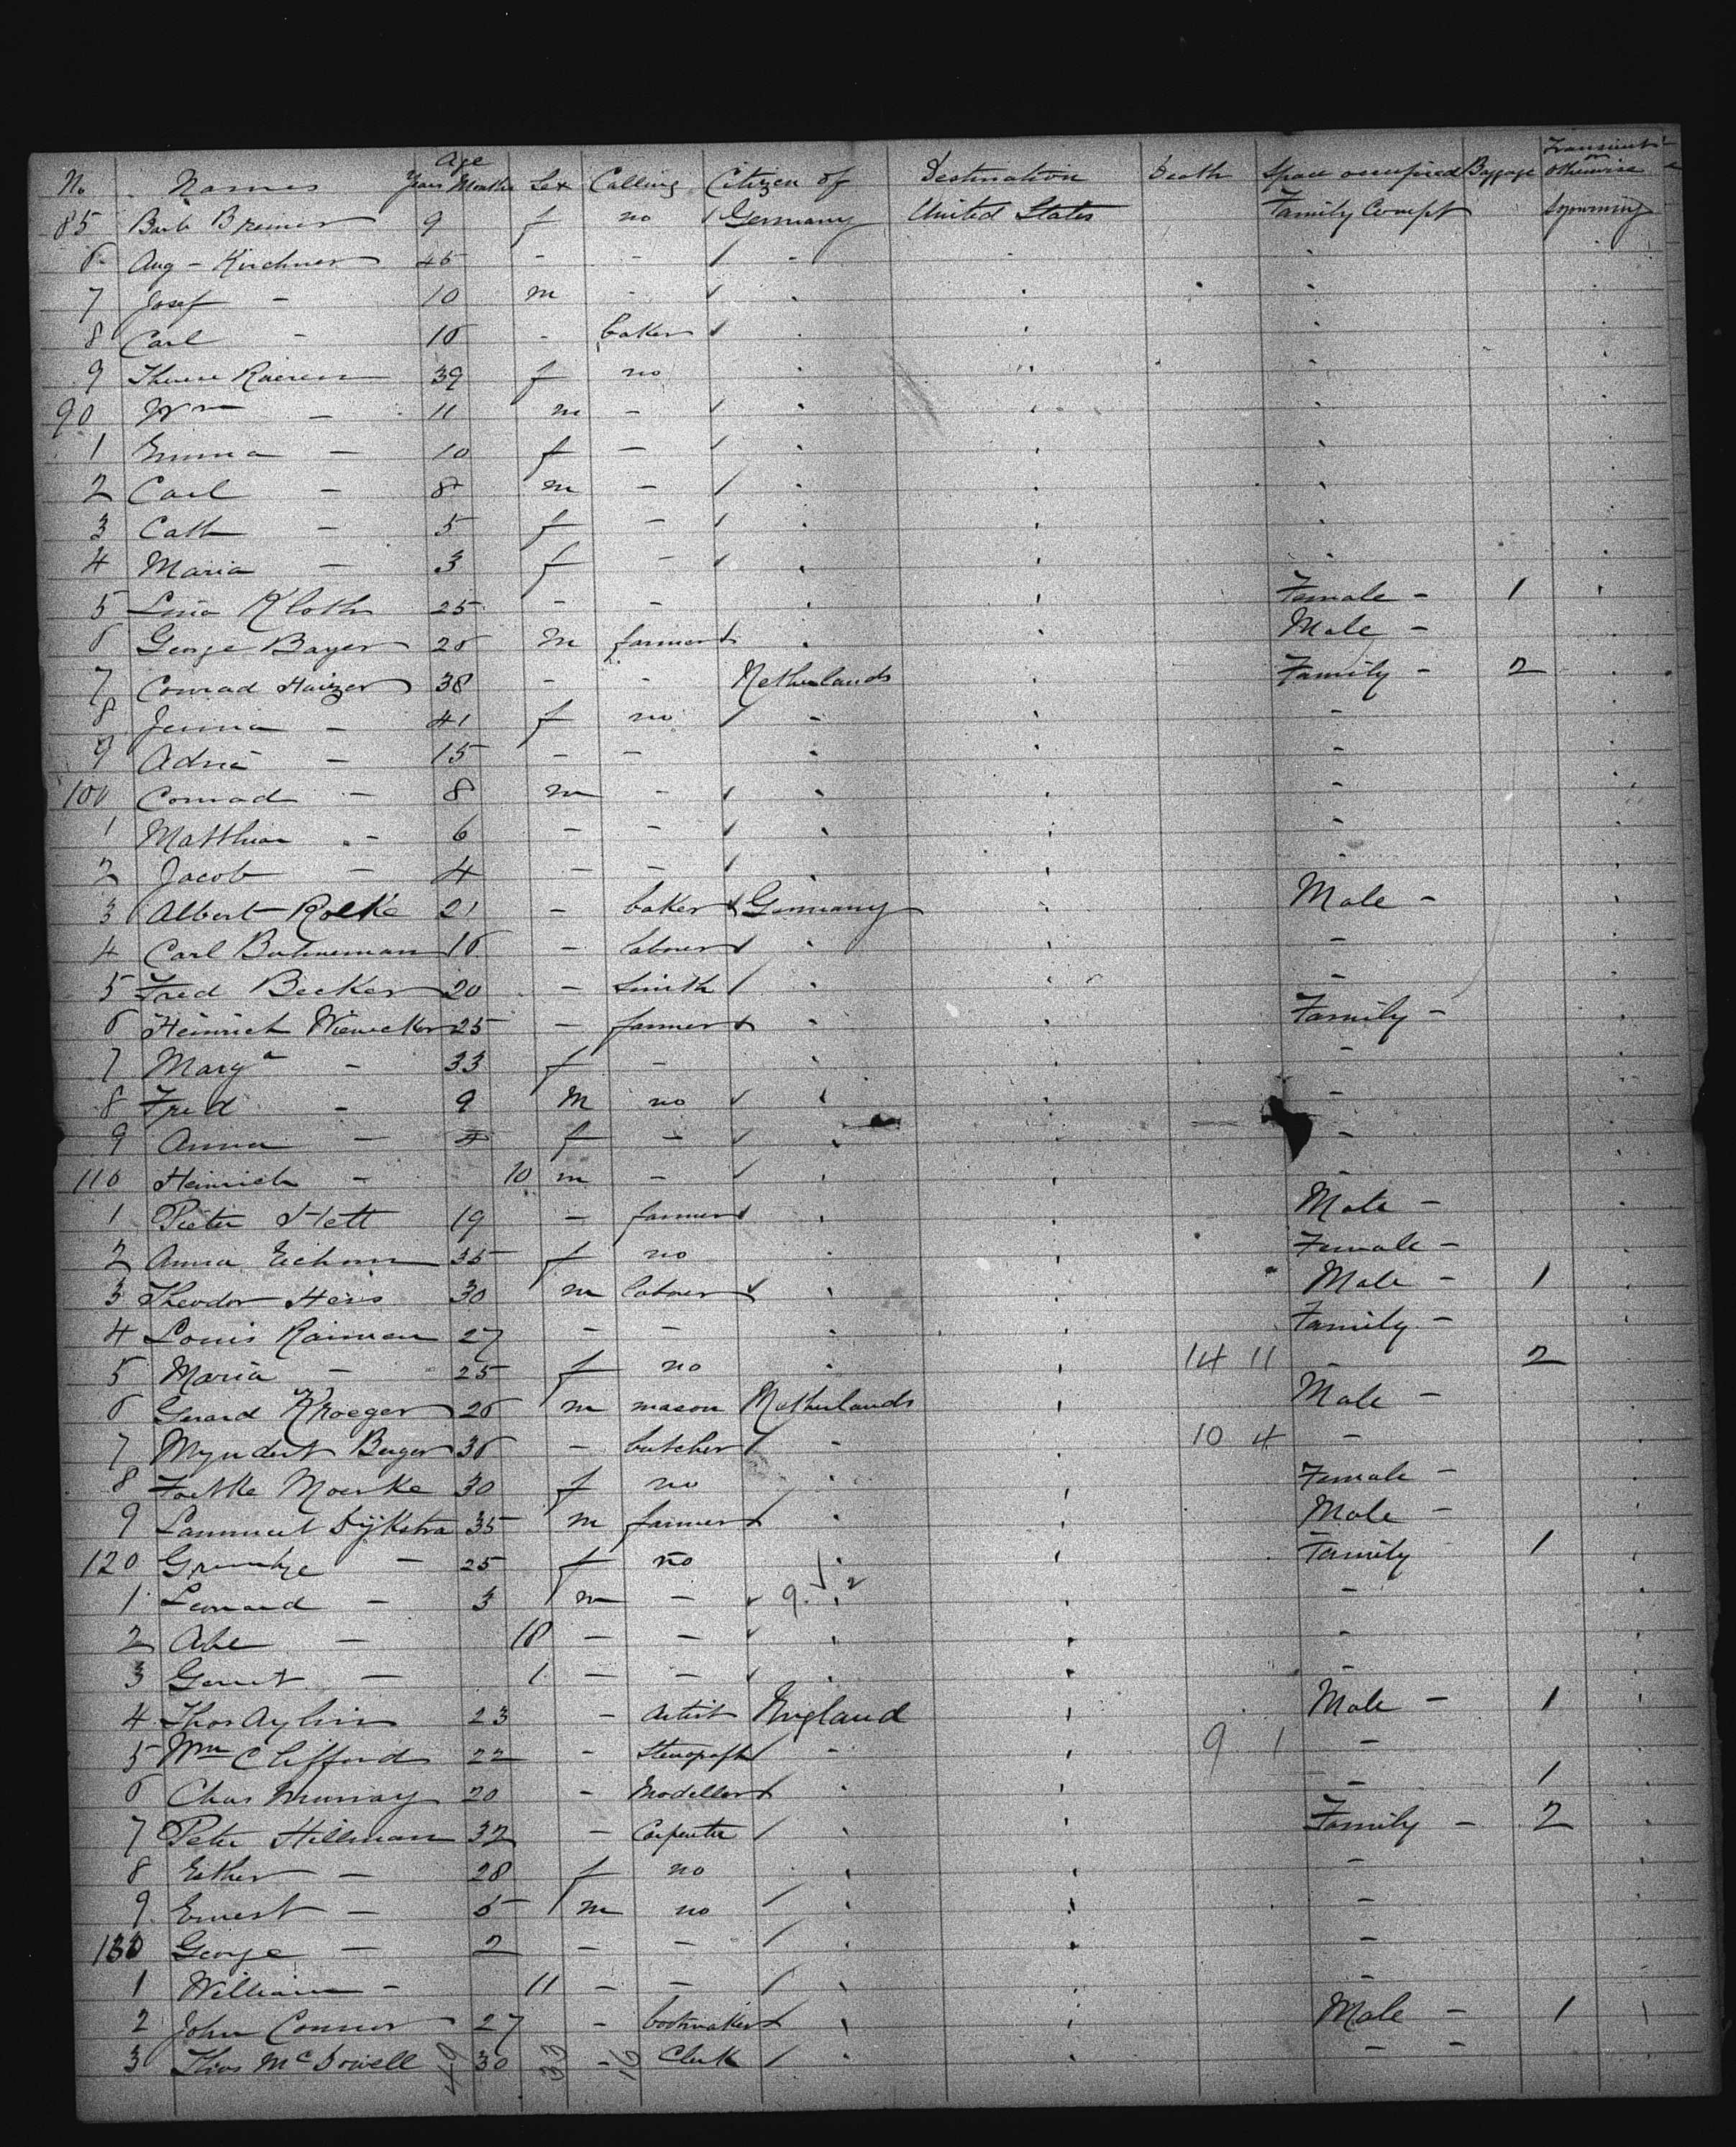 No Names Age Years Months Sex Calling Citizen of Destination Death Space occupied Baggage Transient or otherwise
85 Barb Bremer 9 f no Germany United States Family Compt Sojourning
6 Aug - Kirchner 45 - - -
7 Josef - 10 m -
8 Carl - 16 - baker
9 Therese 39 f no
90 Wm - 11 m -
1 Emma - 10 f -
2 Carl - 8 m -
3 Cath - 5 f -
4 Maria - 3 f -
5 Lina Kloth 25 - - Female - 1
6 George Bayer 26 m farmer Male -
7 Conrad Huizer 38 - - Netherlands Family - 2
8 - 41 f no - -
9 Adria - 15 - - -
100 Conrad - 8 m - -
1 Matthias - 6 - - -
2 Jacob - 4 - - -
3 Albert Roeke 21 - baker Germany Male -
4 Carl 16 - labourer -
5 Fred Becker 20 - Smith -
6 Heinrich 25 - farmer Family -
7 Marga - 33 f - -
8 Fred - 9 m no -
9 Anna - 4 f - -
110 Heinrich - 10 m - -
1 Pieter Hett 19 - farmer Male -
2 Anna Eichorn 35 f no Female -
3 Theodor Heris 30 m labourer Male - 1
4 Louis Raiman 27 - - Family -
5 Maria - 25 f no 14 11 - 2
6 Gerard Kroeger 26 m mason Netherlands Male -
7 Myndert Berger 36 - butcher - 10 4 -
8 Foekke Moerke 30 f no Female -
9 Lammert Dijkstra 35 m farmer Male -
120 - 25 f no Family 1
1 Leonard - 3 m - 9 2 -
2 Abe - 10 - - -
3 Gerrit - 1 - - -
4 Thos Aylin 23 - Artist England Male - 1
5 Wm Clifford 22 - Stenograph - 9 1 -
6 Chas Murray 20 - Modeller - 1
7 Peter Hillman 32 - Carpenter Family - 2
8 Esther - 28 f no -
9 Ernest - 5 m no -
130 George - 2 - - -
1 William - 11 - - -
2 John Connor 27 - bootmaker Male - 1
3 Thos McDowell 30 - Clerk - -
49 33 16